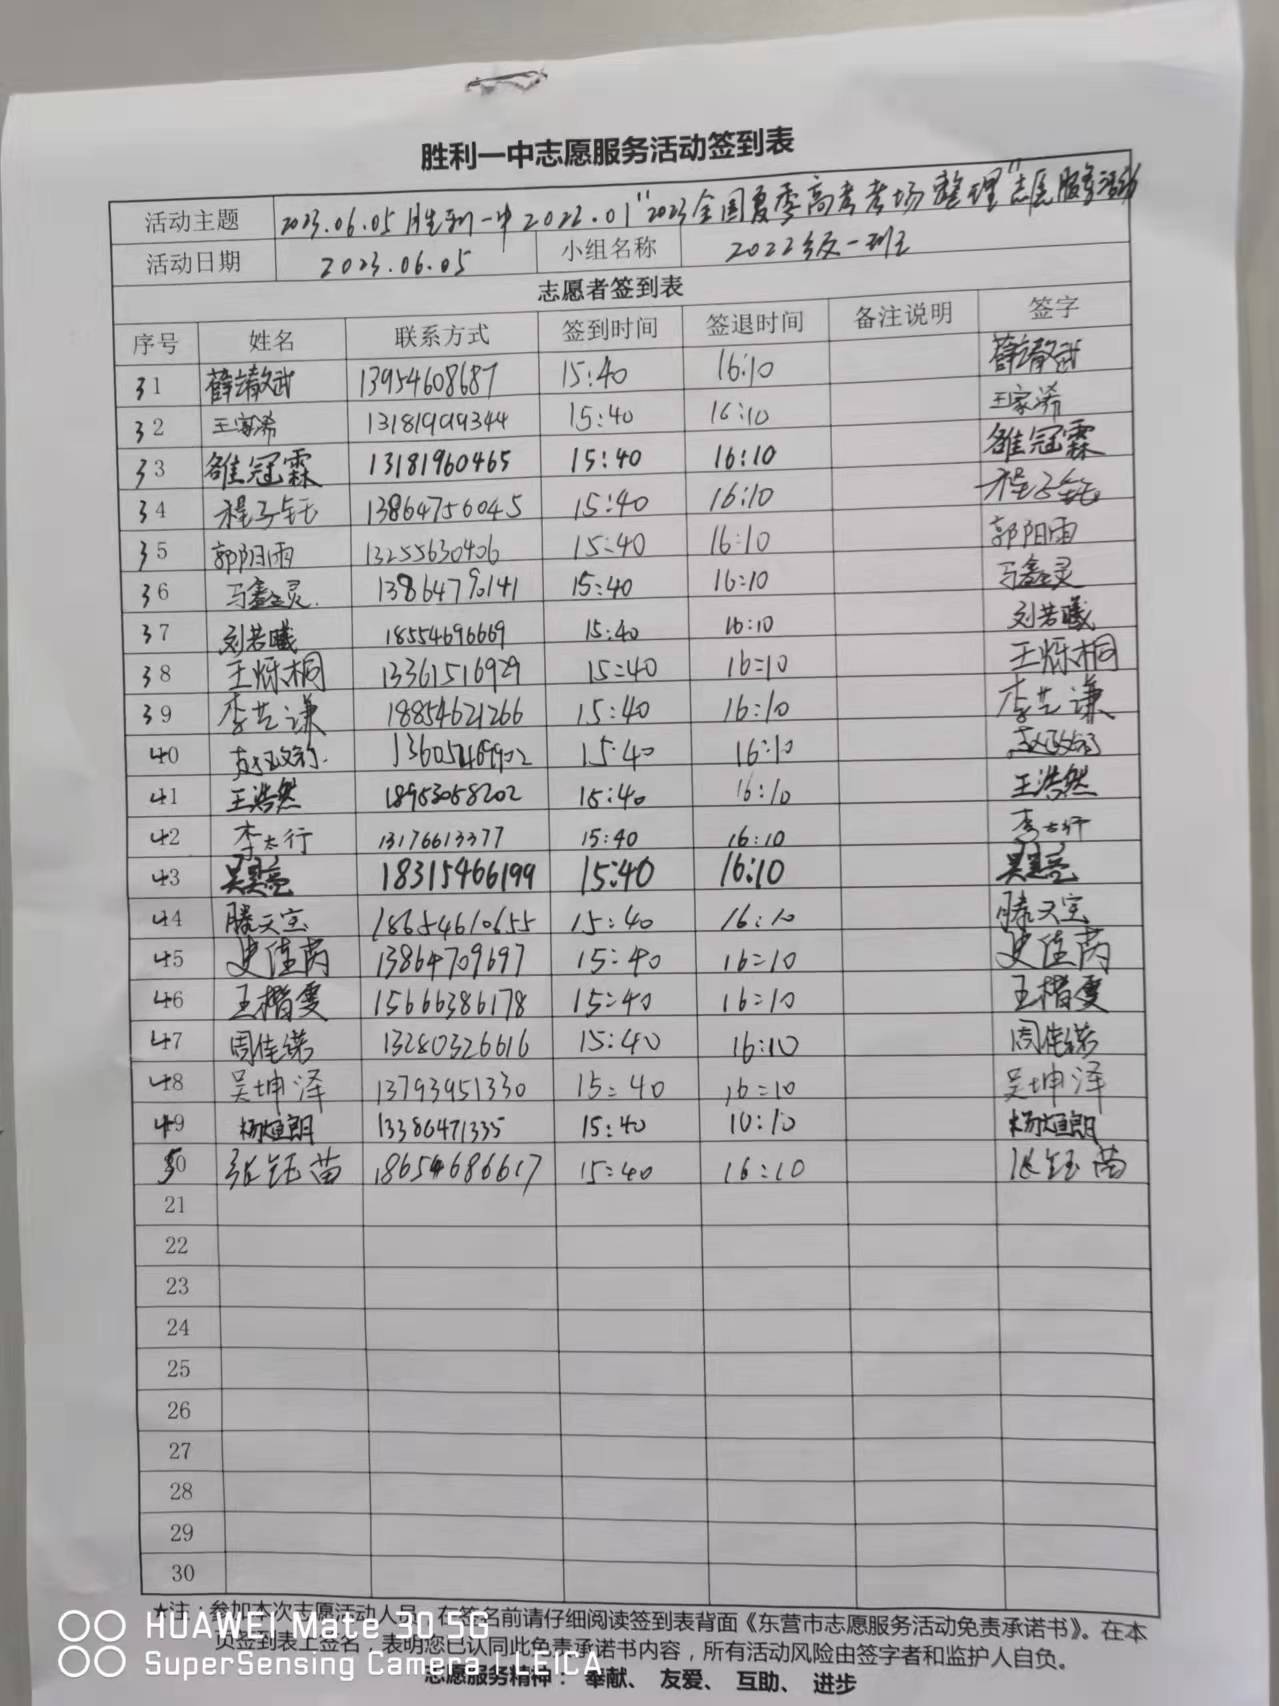 胜利一中志愿服务活动签到表
活动主题 2023.06.05 胜利一中2022.01"2023全国夏季高考考场整理"志愿服务活动
活动日期 2023.06.05 小组名称 2022级一班
志愿者签到表
序号 姓名 联系方式 签到时间 签退时间 备注说明 签字
31 薛靖斌 13954608687 15:40 16:10 薛靖斌
32 王家浠 13181999344 15:40 16:10 王家浠
33 雒冠霖 13181960465 15:40 16:10 雒冠霖
34 程子钰 13864756045 15:40 16:10 程子钰
35 郭阳雨 13255630406 15:40 16:10 郭阳雨
36 马鑫灵 13864790141 15:40 16:10 马鑫灵
37 刘若曦 18554696669 15:40 16:10 刘若曦
38 王烁桐 13361516929 15:40 16:10 王烁桐
39 李芷谦 18854621266 15:40 16:10 李芷谦
40 15:40 16:10
41 王浩然 18953058202 15:40 16:10 王浩然
42 李太行 13176613377 15:40 16:10 李太行
43 吴昊亮 18315466199 15:40 16:10 吴昊亮
44 滕天宝 18654610655 15:40 16:10 滕天宝
45 史佳芮 13864709697 15:40 16:10 史佳芮
46 王楷雯 15666386178 15:40 16:10 王楷雯
47 周佳诺 13280326616 15:40 16:10 周佳诺
48 吴坤泽 13793951330 15:40 16:10 吴坤泽
49 杨烜朗 13386471335 15:40 16:10 杨烜朗
50 张钰苗 18654686617 15:40 16:10 张钰苗
21
22
23
24
25
26
27
28
29
30
★注：参加本次志愿活动人员，在签名前请仔细阅读签到表背面《东营市志愿服务活动免责承诺书》。在本
页签到表上签名，表明您已认同此免责承诺书内容，所有活动风险由签字者和监护人自负。
志愿服务精神：奉献、友爱、互助、进步
HUAWEI Mate 30 5G
SuperSensing Camera | LEICA